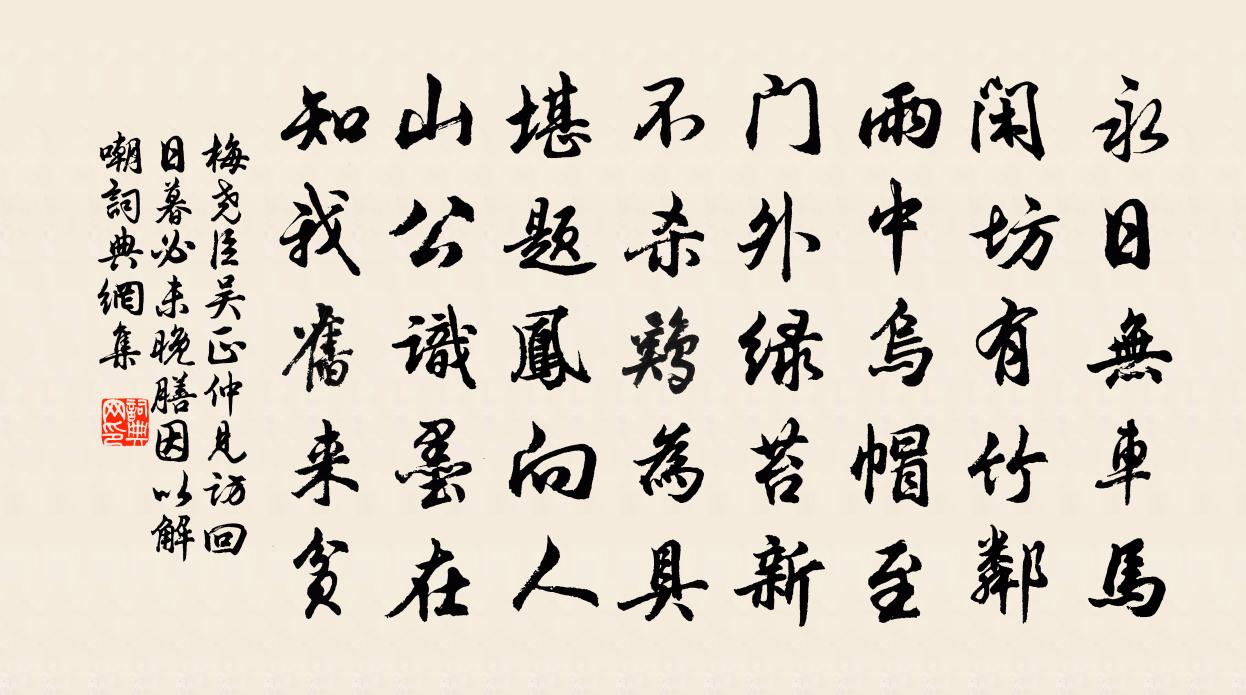 永日無車馬
閑坊有竹鄰
雨中烏帽至
门外緑苔新
不杀鷄為具
堪題鳳向人
山公識墨在
知我舊来贫
梅尧臣吴正仲見访回
日暮必未晚膳因以解
嘲詞典網集
詞典网印